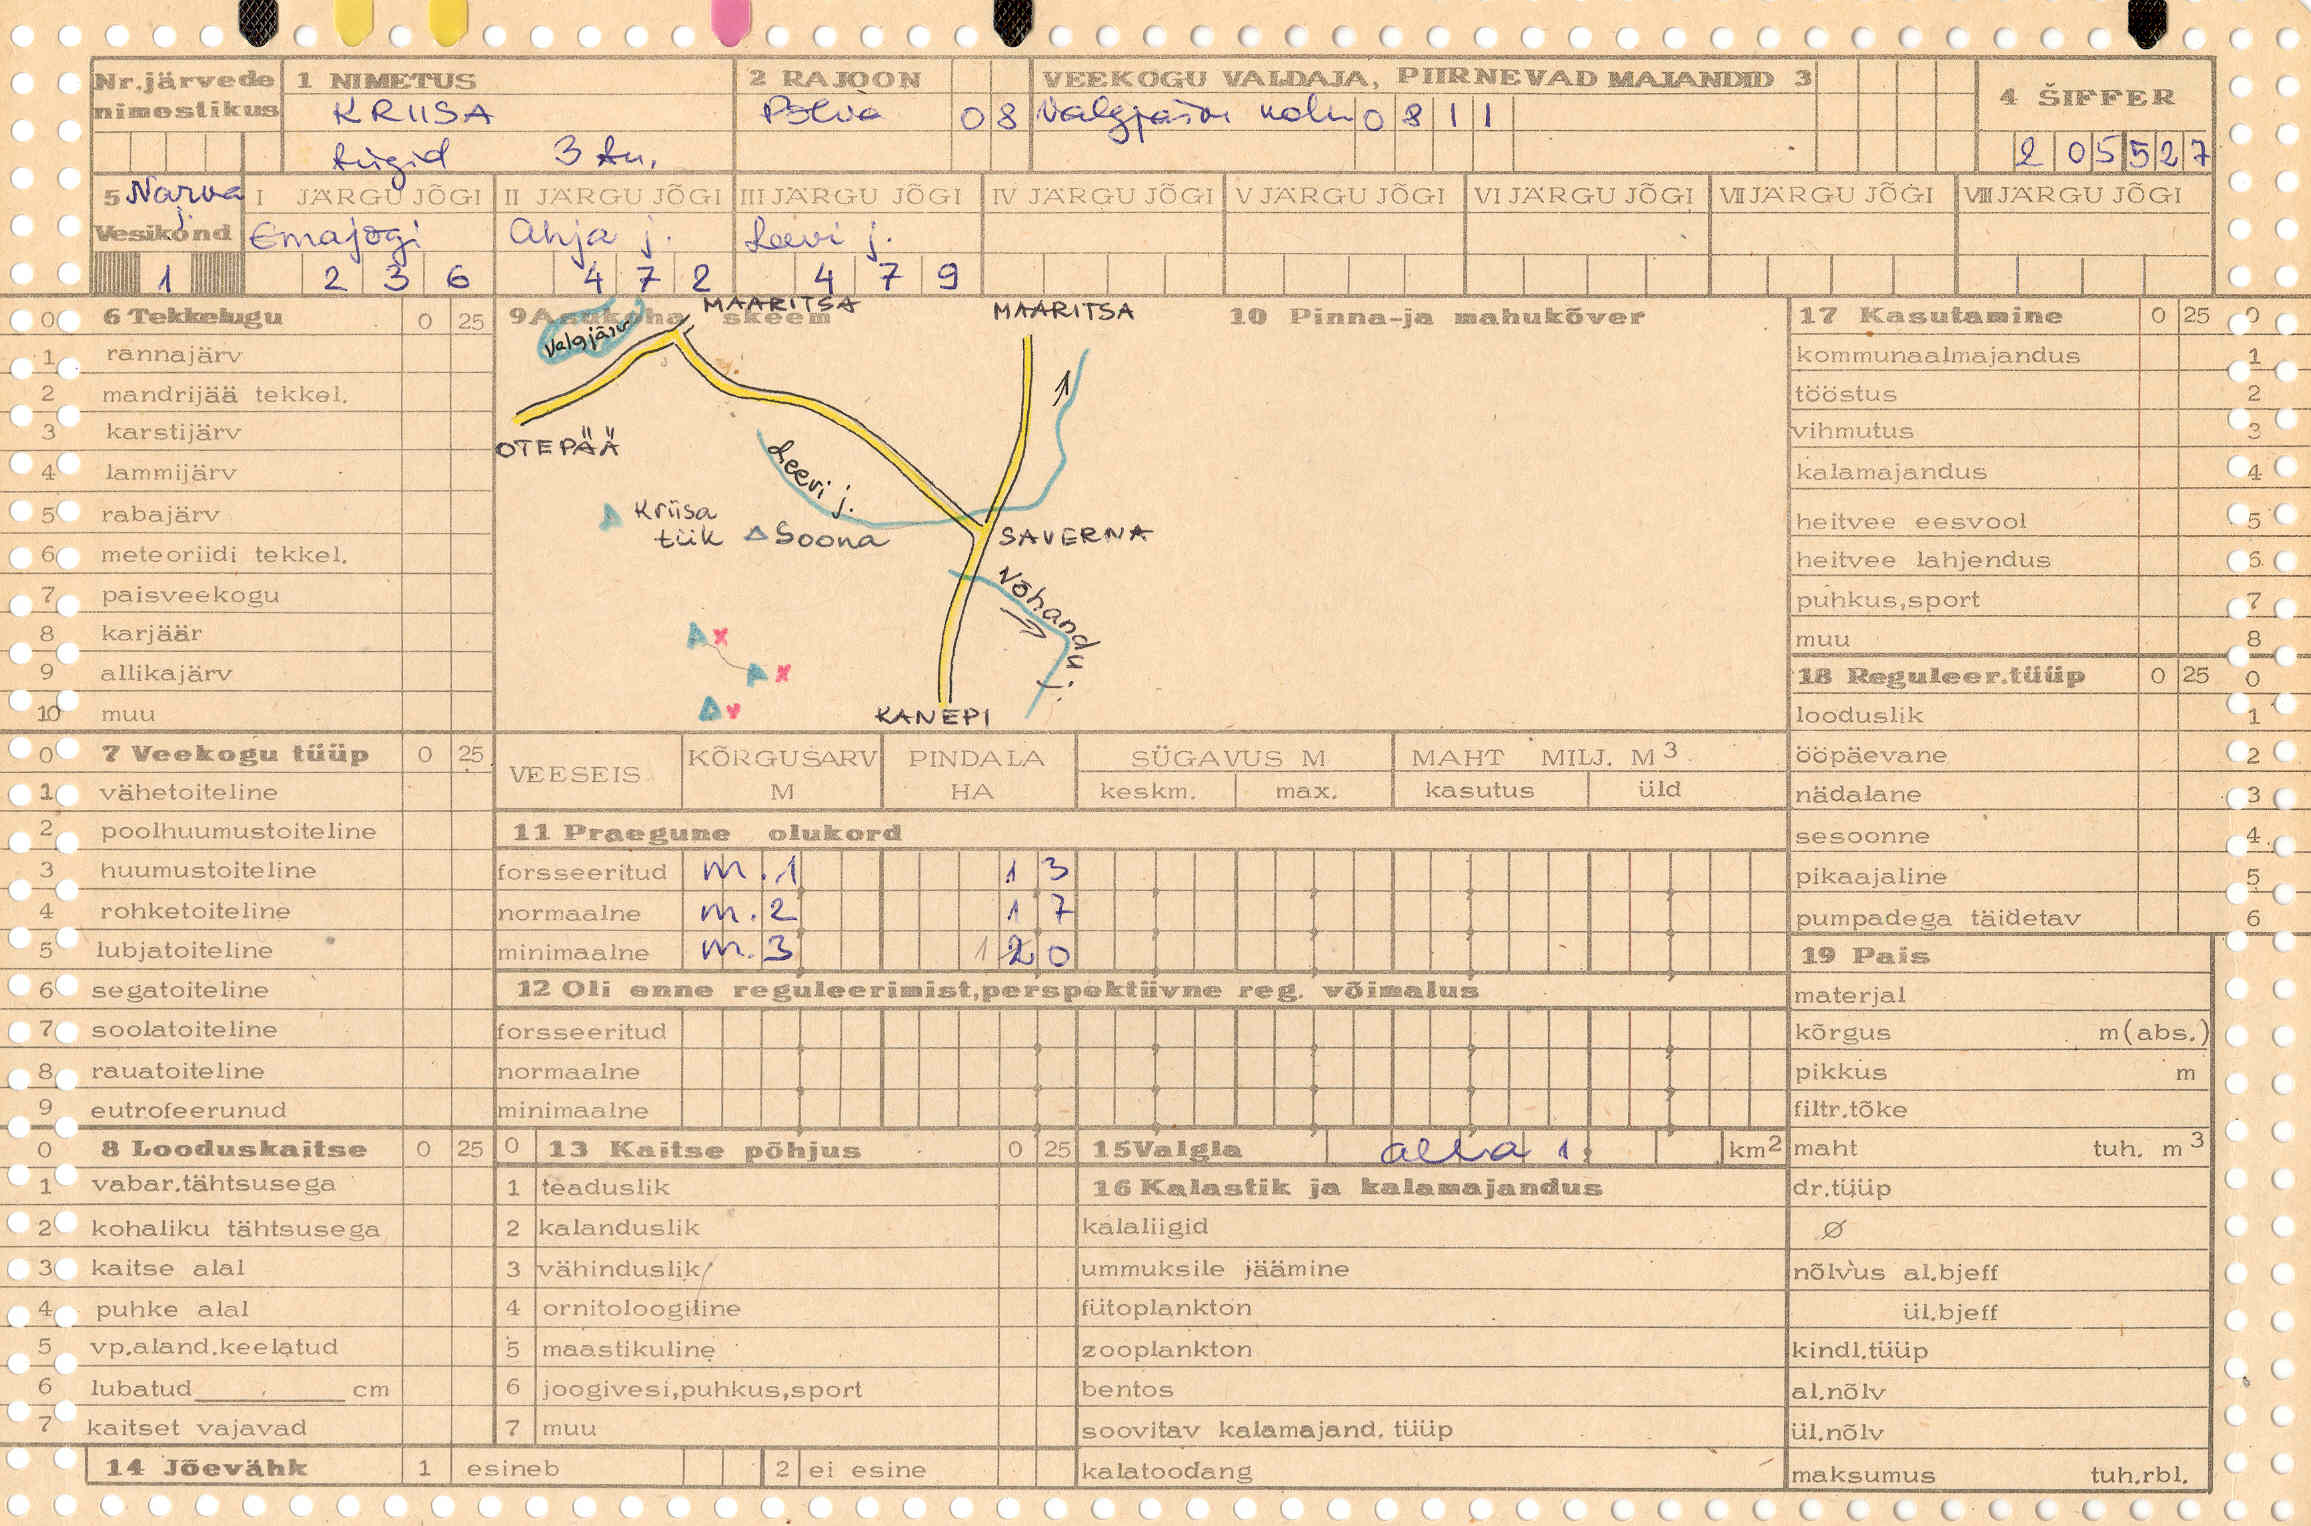 Nr.järvede nimestikus
1 NIMETUS
KRIISA
tiigid 3 tk.
2 RAJOON
Põlva 08
VEEKOGU VALDAJA, PIIRNEVAD MAJANDID 3
Valgjärve kolh 0811
4 ŠIFFER
205527
5 Narva j.
Vesikond
1
I JÄRGU JÕGI
Emajõgi
236
II JÄRGU JÕGI
Ahja j.
472
III JÄRGU JÕGI
Leevi j.
479
IV JÄRGU JÕGI
V JÄRGU JÕGI
VI JÄRGU JÕGI
VII JÄRGU JÕGI
VIII JÄRGU JÕGI
0 6 Tekkelugu 0 25
1 rannajärv
2 mandrijää tekkel.
3 karstijärv
4 lammijärv
5 rabajärv
6 meteoriidi tekkel.
7 paisveekogu
8 karjäär
9 allikajärv
10 muu
0 7 Veekogu tüüp 0 25
1 vähetoiteline
2 poolhuumustoiteline
3 huumustoiteline
4 rohketoiteline
5 lubjatoiteline
6 segatoiteline
7 soolatoiteline
8 rauatoiteline
9 eutrofeerunud
0 8 Looduskaitse 0 25
1 vabar.tähtsusega
2 kohaliku tähtsusega
3 kaitse alal
4 puhke alal
5 vp.aland.keelatud
6 lubatud cm
7 kaitset vajavad
9 Asukoha skeem
MAARITSA
MAARITSA
Valgjärv
OTEPÄÄ
Leevi j.
Kriisa
tiik
Soona
SAVERNA
Võhandu j.
x
x
x
KANEPI
10 Pinna-ja mahukõver
VEESEIS
KÕRGUSARV M
PINDALA HA
SÜGAVUS M
keskm. max.
MAHT MILJ. M3
kasutus üld
11 Praegune olukord
forsseeritud m.1 1 3
normaalne m.2 1 7
minimaalne m.3 1 2 0
12 Oli enne reguleerimist,perspektiivne reg. võimalus
forsseeritud
normaalne
minimaalne
0 13 Kaitse põhjus 0 25
1 teaduslik
2 kalanduslik
3 vähinduslik
4 ornitoloogiline
5 maastikuline
6 joogivesi,puhkus,sport
7 muu
14 Jõevähk 1 esineb 2 ei esine
15 Valgla alla 1 km2
16 Kalastik ja kalamajandus
kalaliigid
ummuksile jäämine
fütoplankton
zooplankton
bentos
soovitav kalamajand. tüüp
kalatoodang
17 Kasutamine 0 25 0
kommunaalmajandus 1
tööstus 2
vihmutus 3
kalamajandus 4
heitvee eesvool 5
heitvee lahjendus 6
puhkus,sport 7
muu 8
18 Reguleer.tüüp 0 25 0
looduslik 1
ööpäevane 2
nädalane 3
sesoonne 4
pikaajaline 5
pumpadega täidetav 6
19 Pais
materjal
kõrgus m(abs.)
pikkus m
filtr.tõke
maht tuh. m3
dr.tüüp
Ø
nõlvus al.bjeff
ül.bjeff
kindl.tüüp
al.nõlv
ül.nõlv
maksumus tuh.rbl.